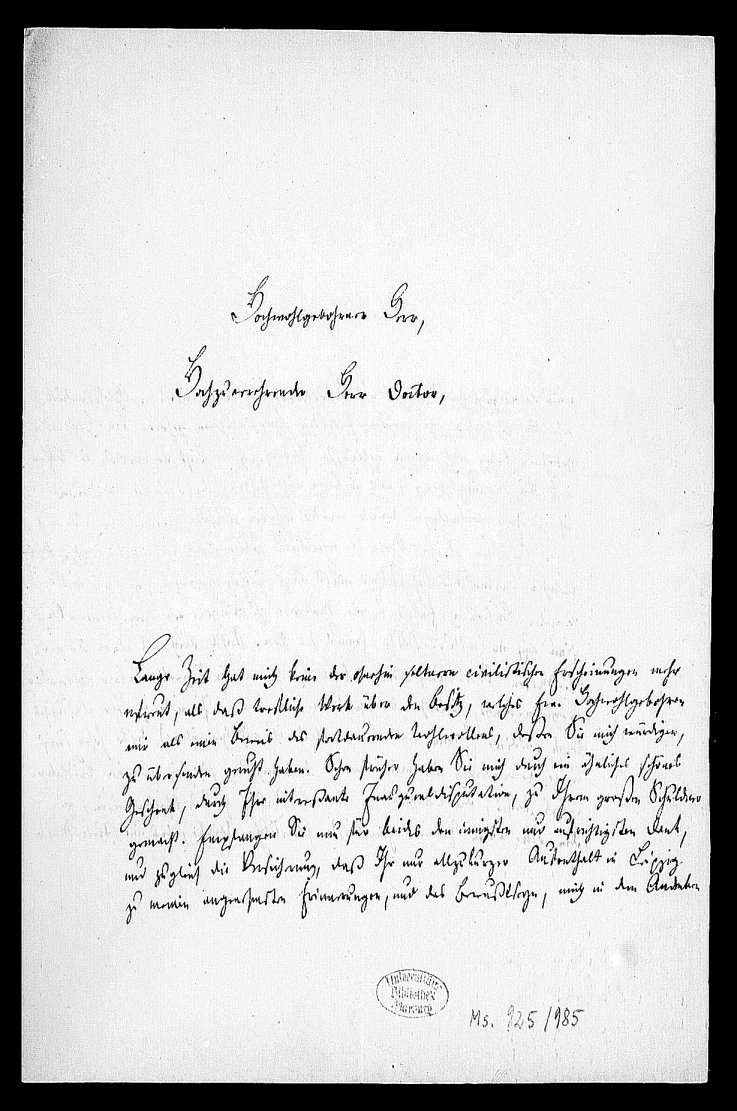 Hochwohlgebohrner Herr,
Hochzuverehrender Herr Doctor,
Lange Zeit hat mich keine der ohnehin seltenern civilistischen Erscheinungen mehr
erfreut, als daß treffliche Werk über den Besitz, welches Ew. Hochwohlgebohren
mir als einen Beweis des fortdauernden Wohlwollens, dessen Sie mich würdigen,
zu übersenden geruht haben. Schon früher haben Sie mich durch ein ähnliches schönes
Geschenk, durch Ihre interessante Inauguraldisputation, zu Ihrem großen Schuldner
gemacht. Empfangen Sie nun für beides den innigsten und aufrichtigsten Dank,
und zugleich die Versicherung, daß Ihr nur allzukurzer Aufenthalt in Leipzig
zu meinen angenehmsten Erinnerungen, und das Bewußtseyn, mich in dem Andenken
Universitäts
Bibliothek
Marburg
Ms. 925/985